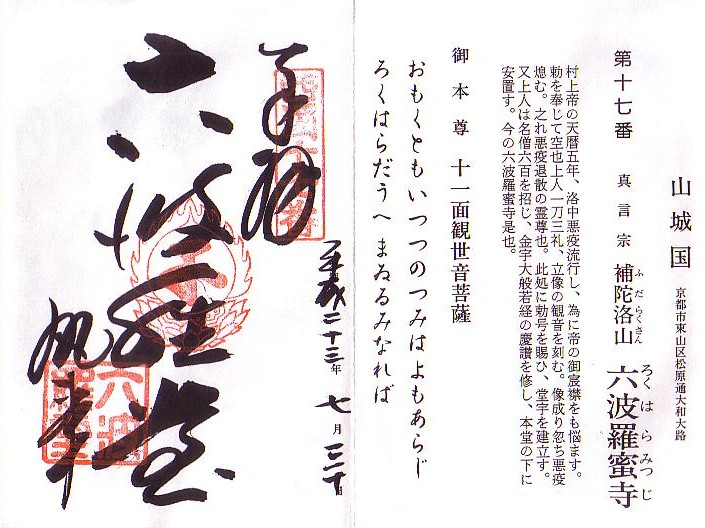 山城国
京都市東山区松原通大和大路
第十七番 真言宗 補陀洛山 六波羅蜜寺
ふだらくさん ろくはらみつじ
村上帝の天暦五年、洛中悪疫流行し、為に帝の御宸襟をも悩ます。
勅を奉じて空也上人一刀三礼、立像の観音を刻む。像成り忽ち悪疫
熄む。之れ悪疫退散の霊尊也。此処に勅号を賜ひ、堂宇を建立す。
又上人は名僧六百を招じ、金字大般若経の慶讃を修し、本堂の下に
安置す。今の六波羅蜜寺是也。
御本尊 十一面観世音菩薩
おもくともいつつのつみはよもあらじ
ろくはらだうへまゐるみなれば
奉拝
平成二十三年 七月 二十日
六波羅堂